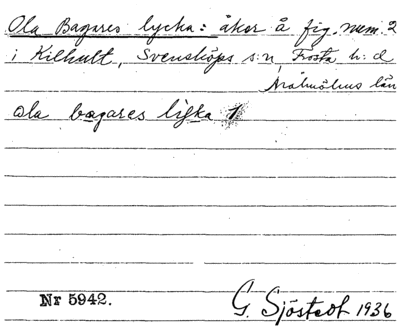 Ola Bagares lycka: åker å fig. num. 2
i Kilhult, Svensköps s:n Frosta h:d
Malmöhus län
ola bagares lyka 1
Nr 5942.
G. Sjöstedt 1936